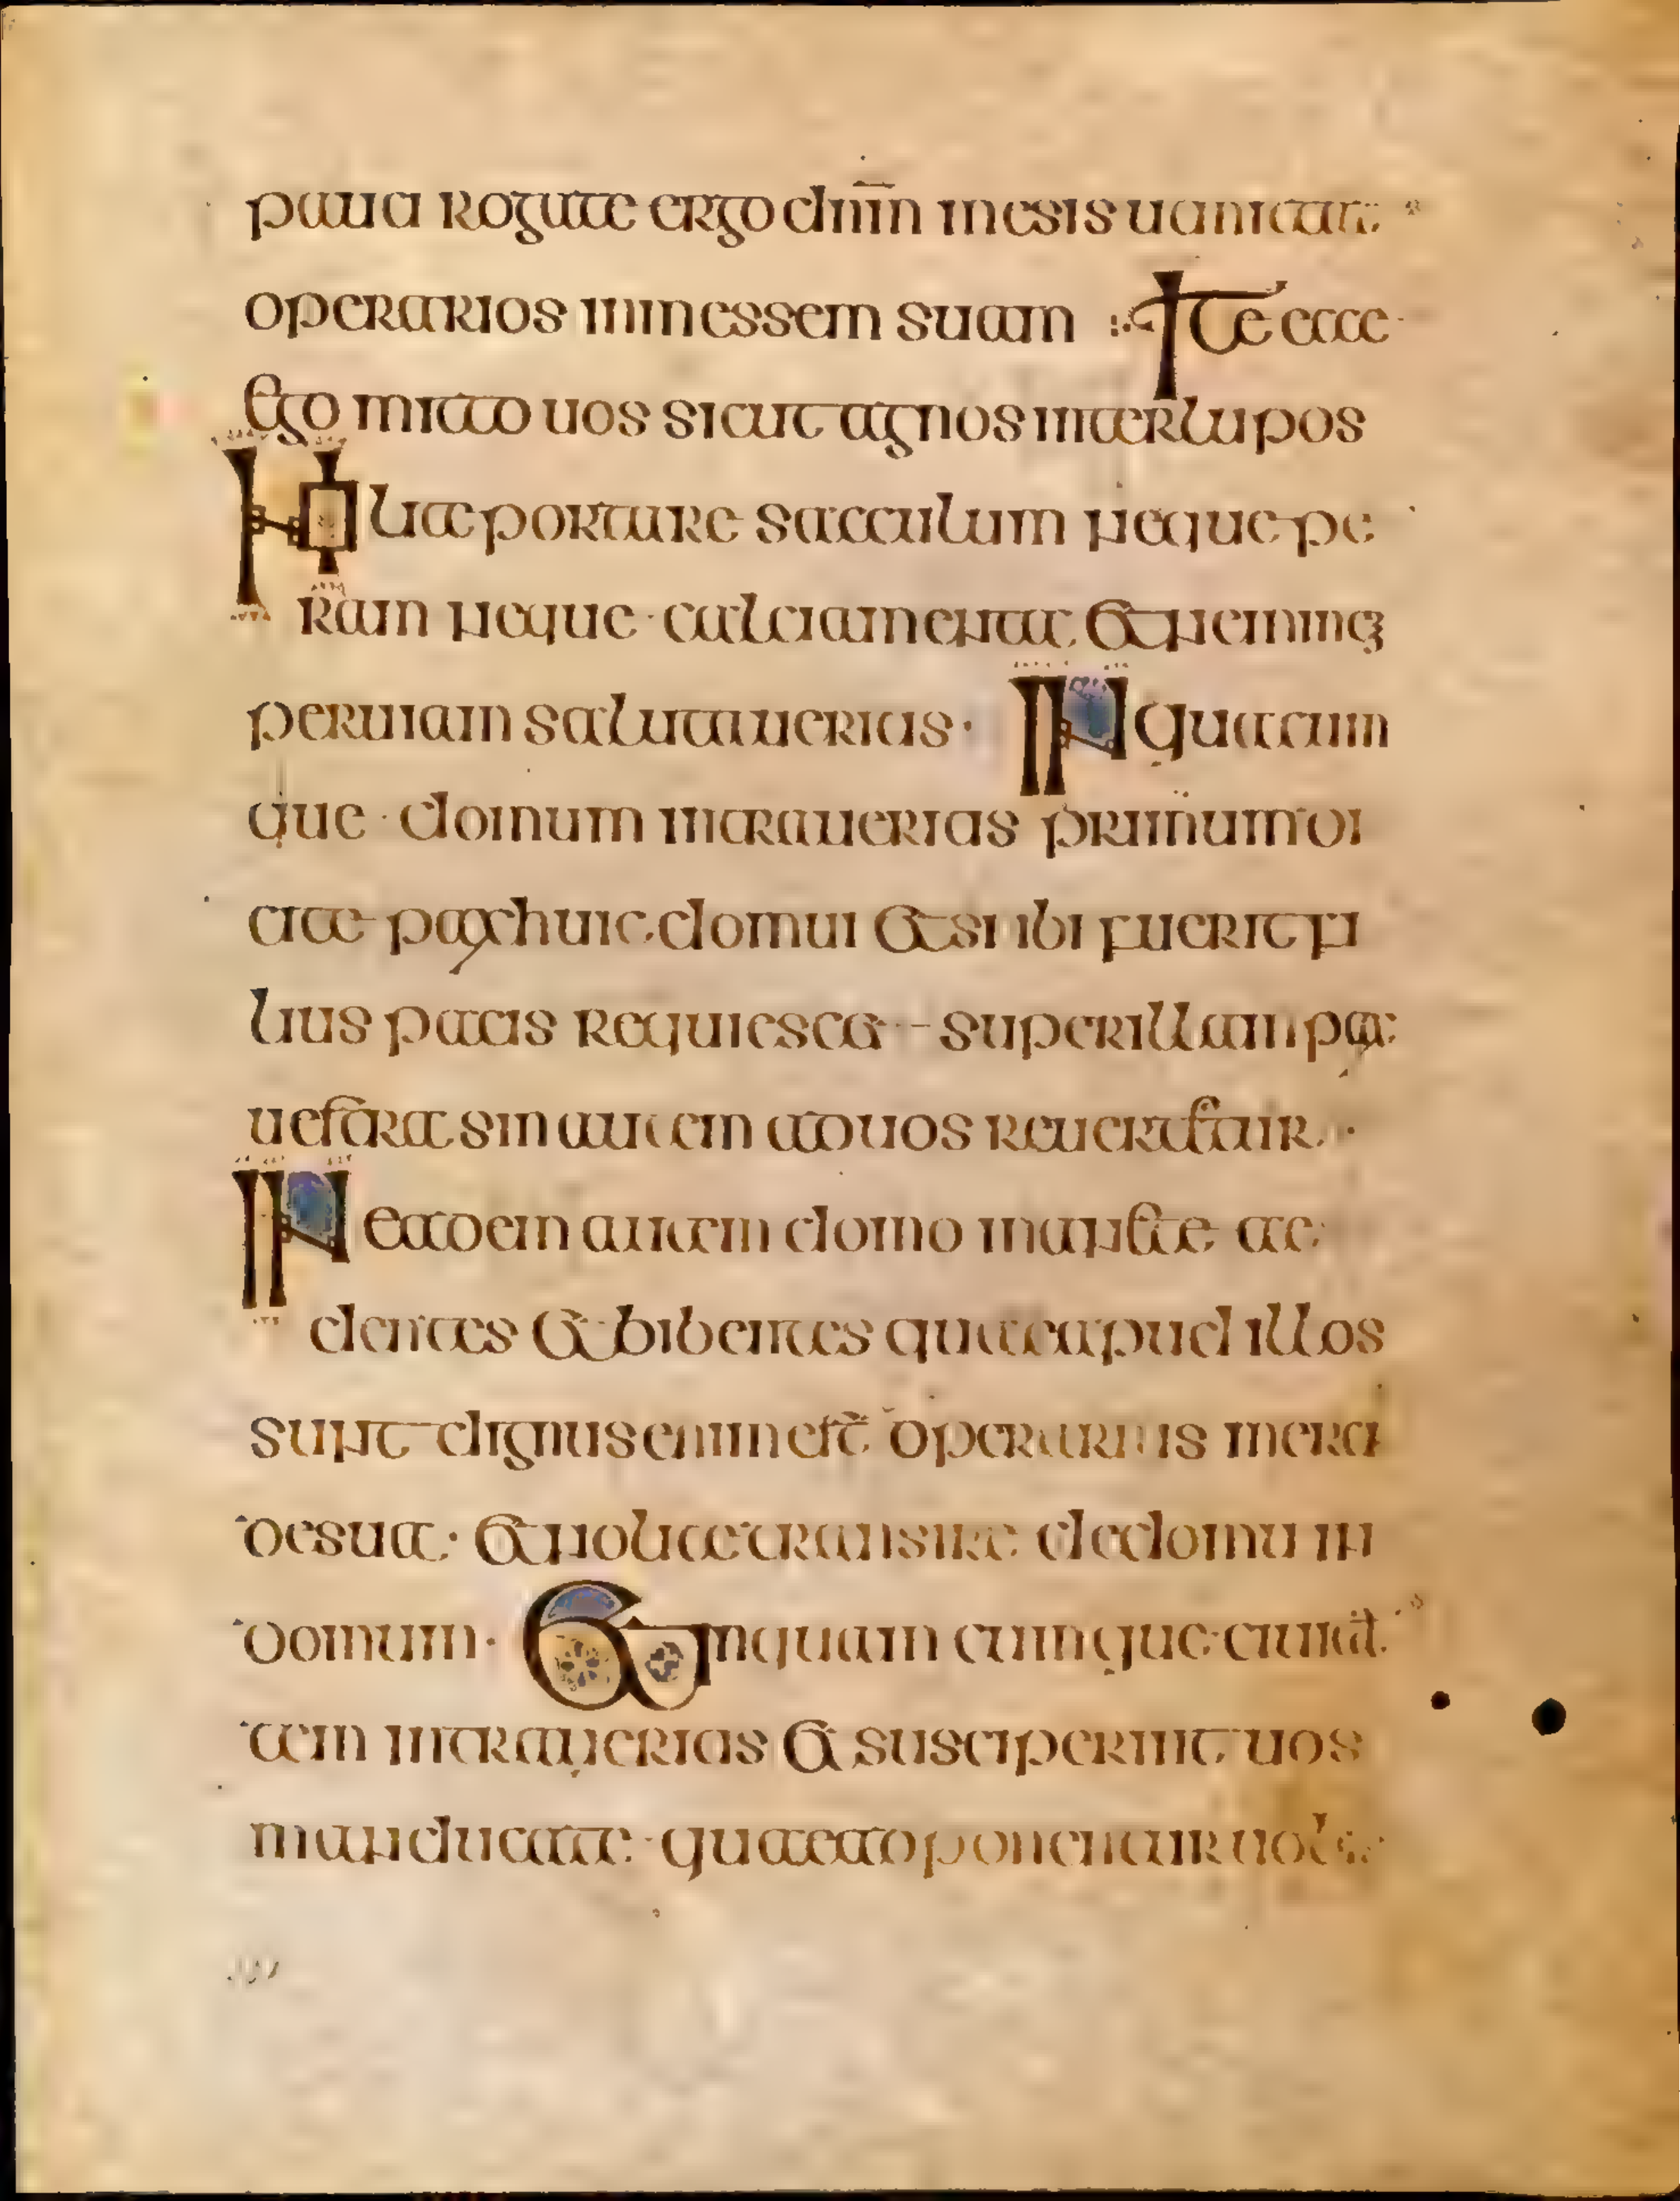 pauci rogate ergo dnm mesis ut mittat
operarios in messem suam Ite ecce
ego mitto uos sicut agnos inter lupos
Nolite portare sacculum neque pe
ram neque calciamenta et neminē
per uiam salutaueritis · In quacum
que domum intraueritis primum di
cite pax huic domui et si ibi fuerit fi
lius pacis requiescet super illam pax
uestra sin autem ad uos reuertatur ·
In eadem autem domo manete ae
dentes et bibentes quae apud illos
sunt dignus enim est operarius merce
de sua · et nolite transire de domu in
domum · Et in quam cumque ciuita
tem intraueritis et susciperint uos
manducate quae adponentur uobis